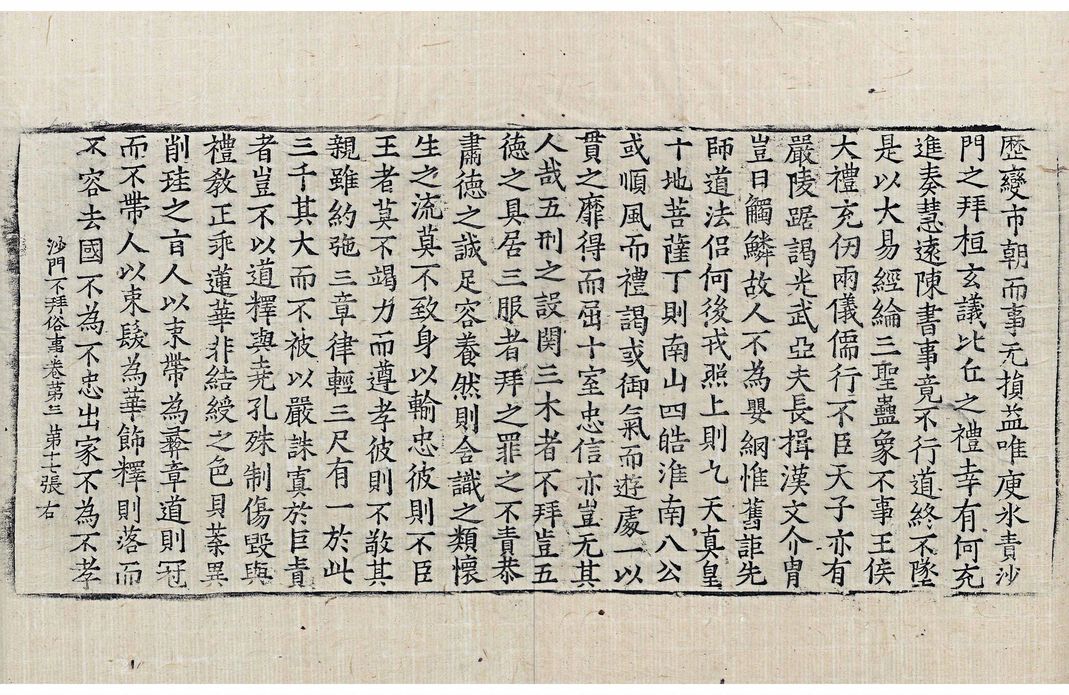 歷變市朝而事无損益唯庾氷責沙
門之拜桓玄議比丘之禮幸有何充
進奏慧遠陳書事竟不行道終不墜
是以大易經綸三聖蠱象不事王侯
大禮充仞兩儀儒行不臣天子亦有
嚴陵踞謁光武亞夫長揖漢文介冑
豈曰觸鱗故人不為嬰綱惟舊詎先
師道法侣何後戎照上則九天真皇
十地菩薩丁則南山四皓淮南八公
或順風而禮謁或御氣而遊處一以
貫之靡得而屈十室忠信亦豈无其
人哉五刑之設関三木者不拜豈五
德之具居三服者拜之罪之不責恭
肅德之誠足容養然則含識之類懷
生之流莫不致身以輸忠彼則不臣
王者莫不竭力而遵孝彼則不敬其
親雖約弛三章律輕三尺有一於此
三千其大而不被以嚴誅寘於巨責
者豈不以道釋與堯孔殊制傷毀與
禮教正乖蓮華非結綬之色貝葉異
削珪之旨人以束帶為彞章道則冠
而不帶人以束髮為華飾釋則落而
不容去國不為不忠出家不為不孝
沙門不拜俗事卷第三 第十七張 右